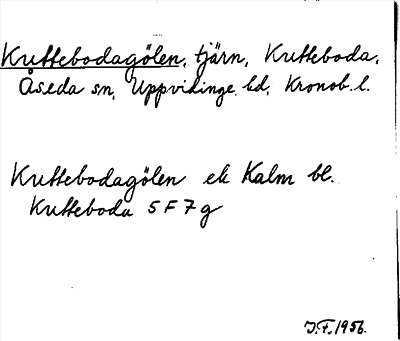 Kuttebodagölen, tjärn, Kutteboda,
Åseda sn, Uppvidinge hd, Kronob. l.
Kuttebodagölen ek Kalm bl.
Kutteboda 5 F 7 g
J.F. 1956.